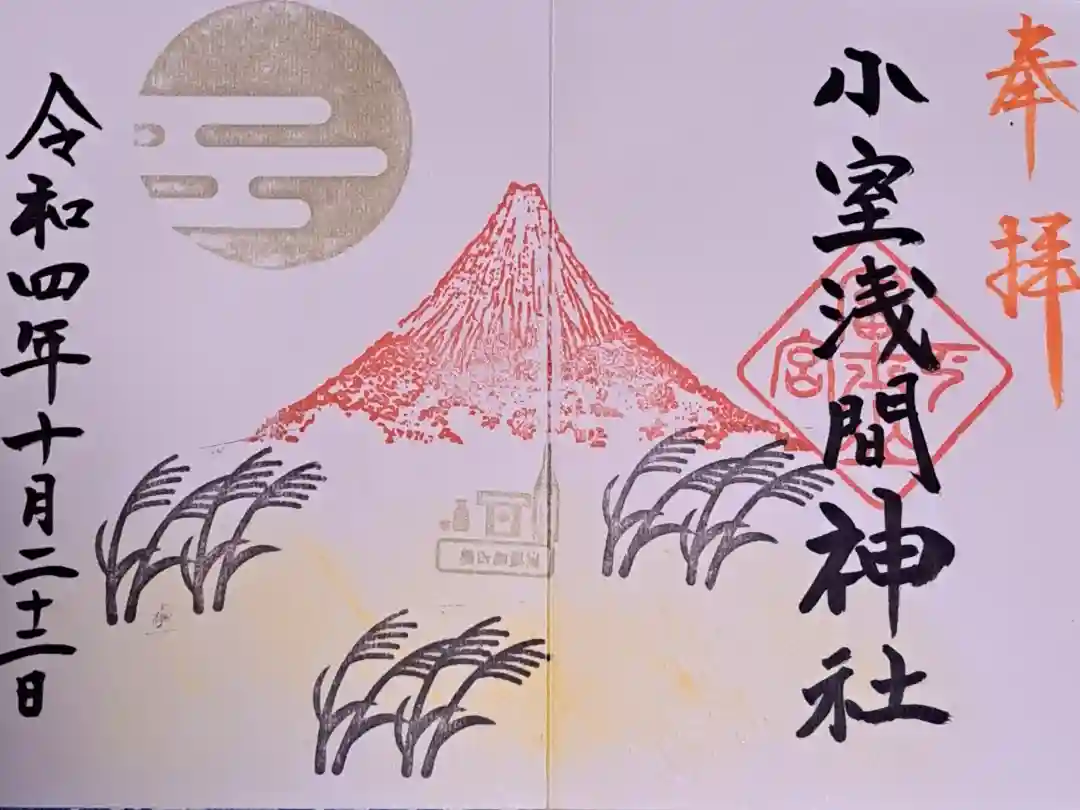 奉拝
小室浅間神社
令和四年十月二十二日